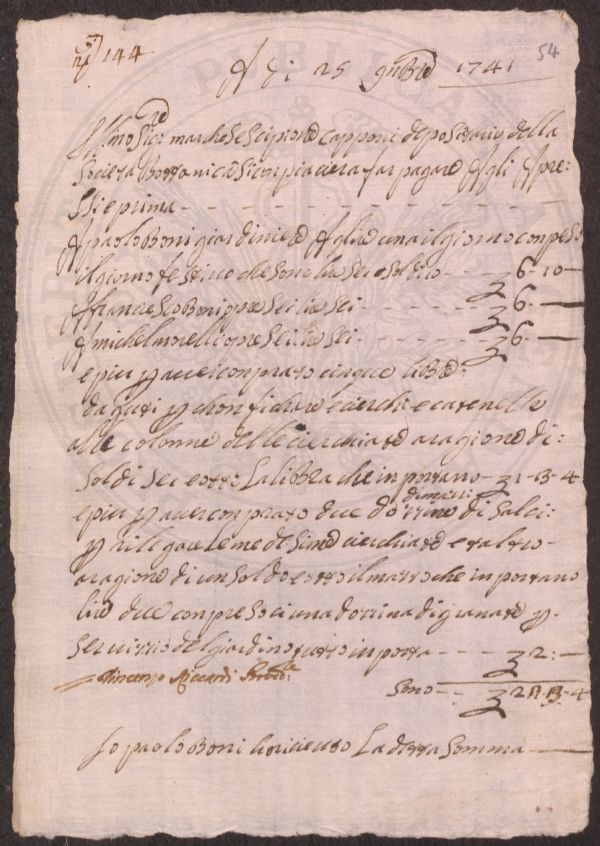 No: 144
54
A di 25 9mbre 1741
Ill.mo Sig:re marchese Scipione capponi depositario della
Societa Bottanica si conpiacera far pagare Agli Apre:
ssi e prima
A paolo Boni giardiniere A lire una il giorno conpreso
il giorno festivo che sono lire sei e soldi 10 6-10-
A francesco Boni opre sei lire sei 6-
A michel morelli opre sei lire sei 6-
e piu p aver conprato cinque libre
da guti p chonfichare e cierchi e catenelle
alle colonne delle cierchiate a ragione di:
Soldi sei e otto La libra che inportano 1-13-4
e piu p aver conprato due dozzine di mazzi: di Salci:
p rilegare le medesime cierchiate et altro
a ragione di un soldo e otto il mazzo che inportano
lire due conpresoci una dozzina di granate p
servizzio del giardino tutto inporta 2:-
Vincenzo Riccardi Provd:re
Sono 22-3-4
Io paolo Boni ho riceuto La detta Somma